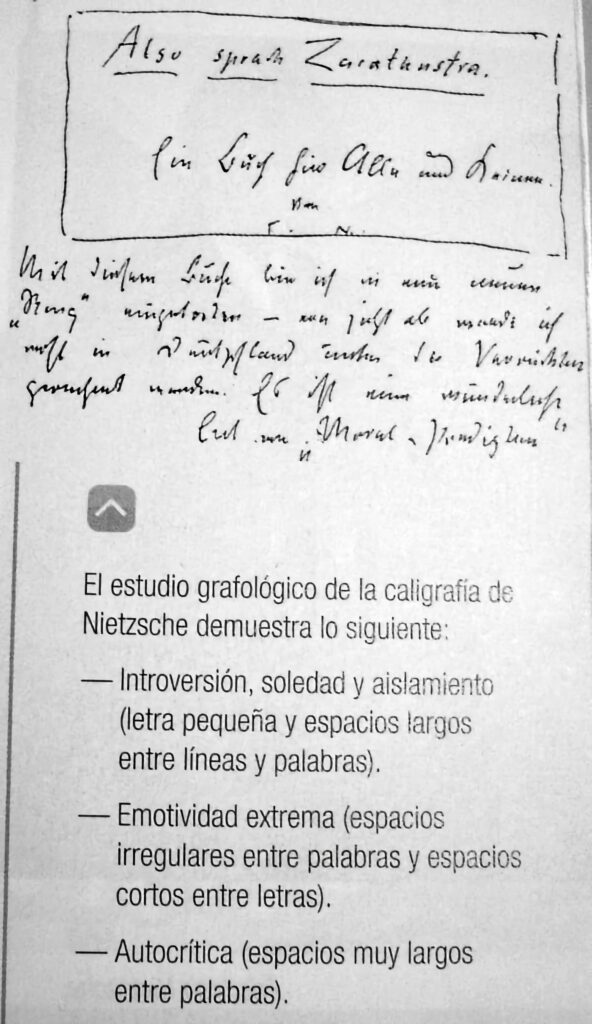 Also sprach Zarathustra.
Ein Buch für Alle und Keinen.
Von
F. N.
Mit diesem Buche bin ich in einen neuen
„Ring“ eingetreten — von jetzt ab werde ich
wohl in Deutschland unter die Verrückten
gerechnet werden. Es ist eine wunderliche
Art von „Moral-Predigten“
El estudio grafológico de la caligrafía de
Nietzsche demuestra lo siguiente:
— Introversión, soledad y aislamiento
(letra pequeña y espacios largos
entre líneas y palabras).
— Emotividad extrema (espacios
irregulares entre palabras y espacios
cortos entre letras).
— Autocrítica (espacios muy largos
entre palabras).